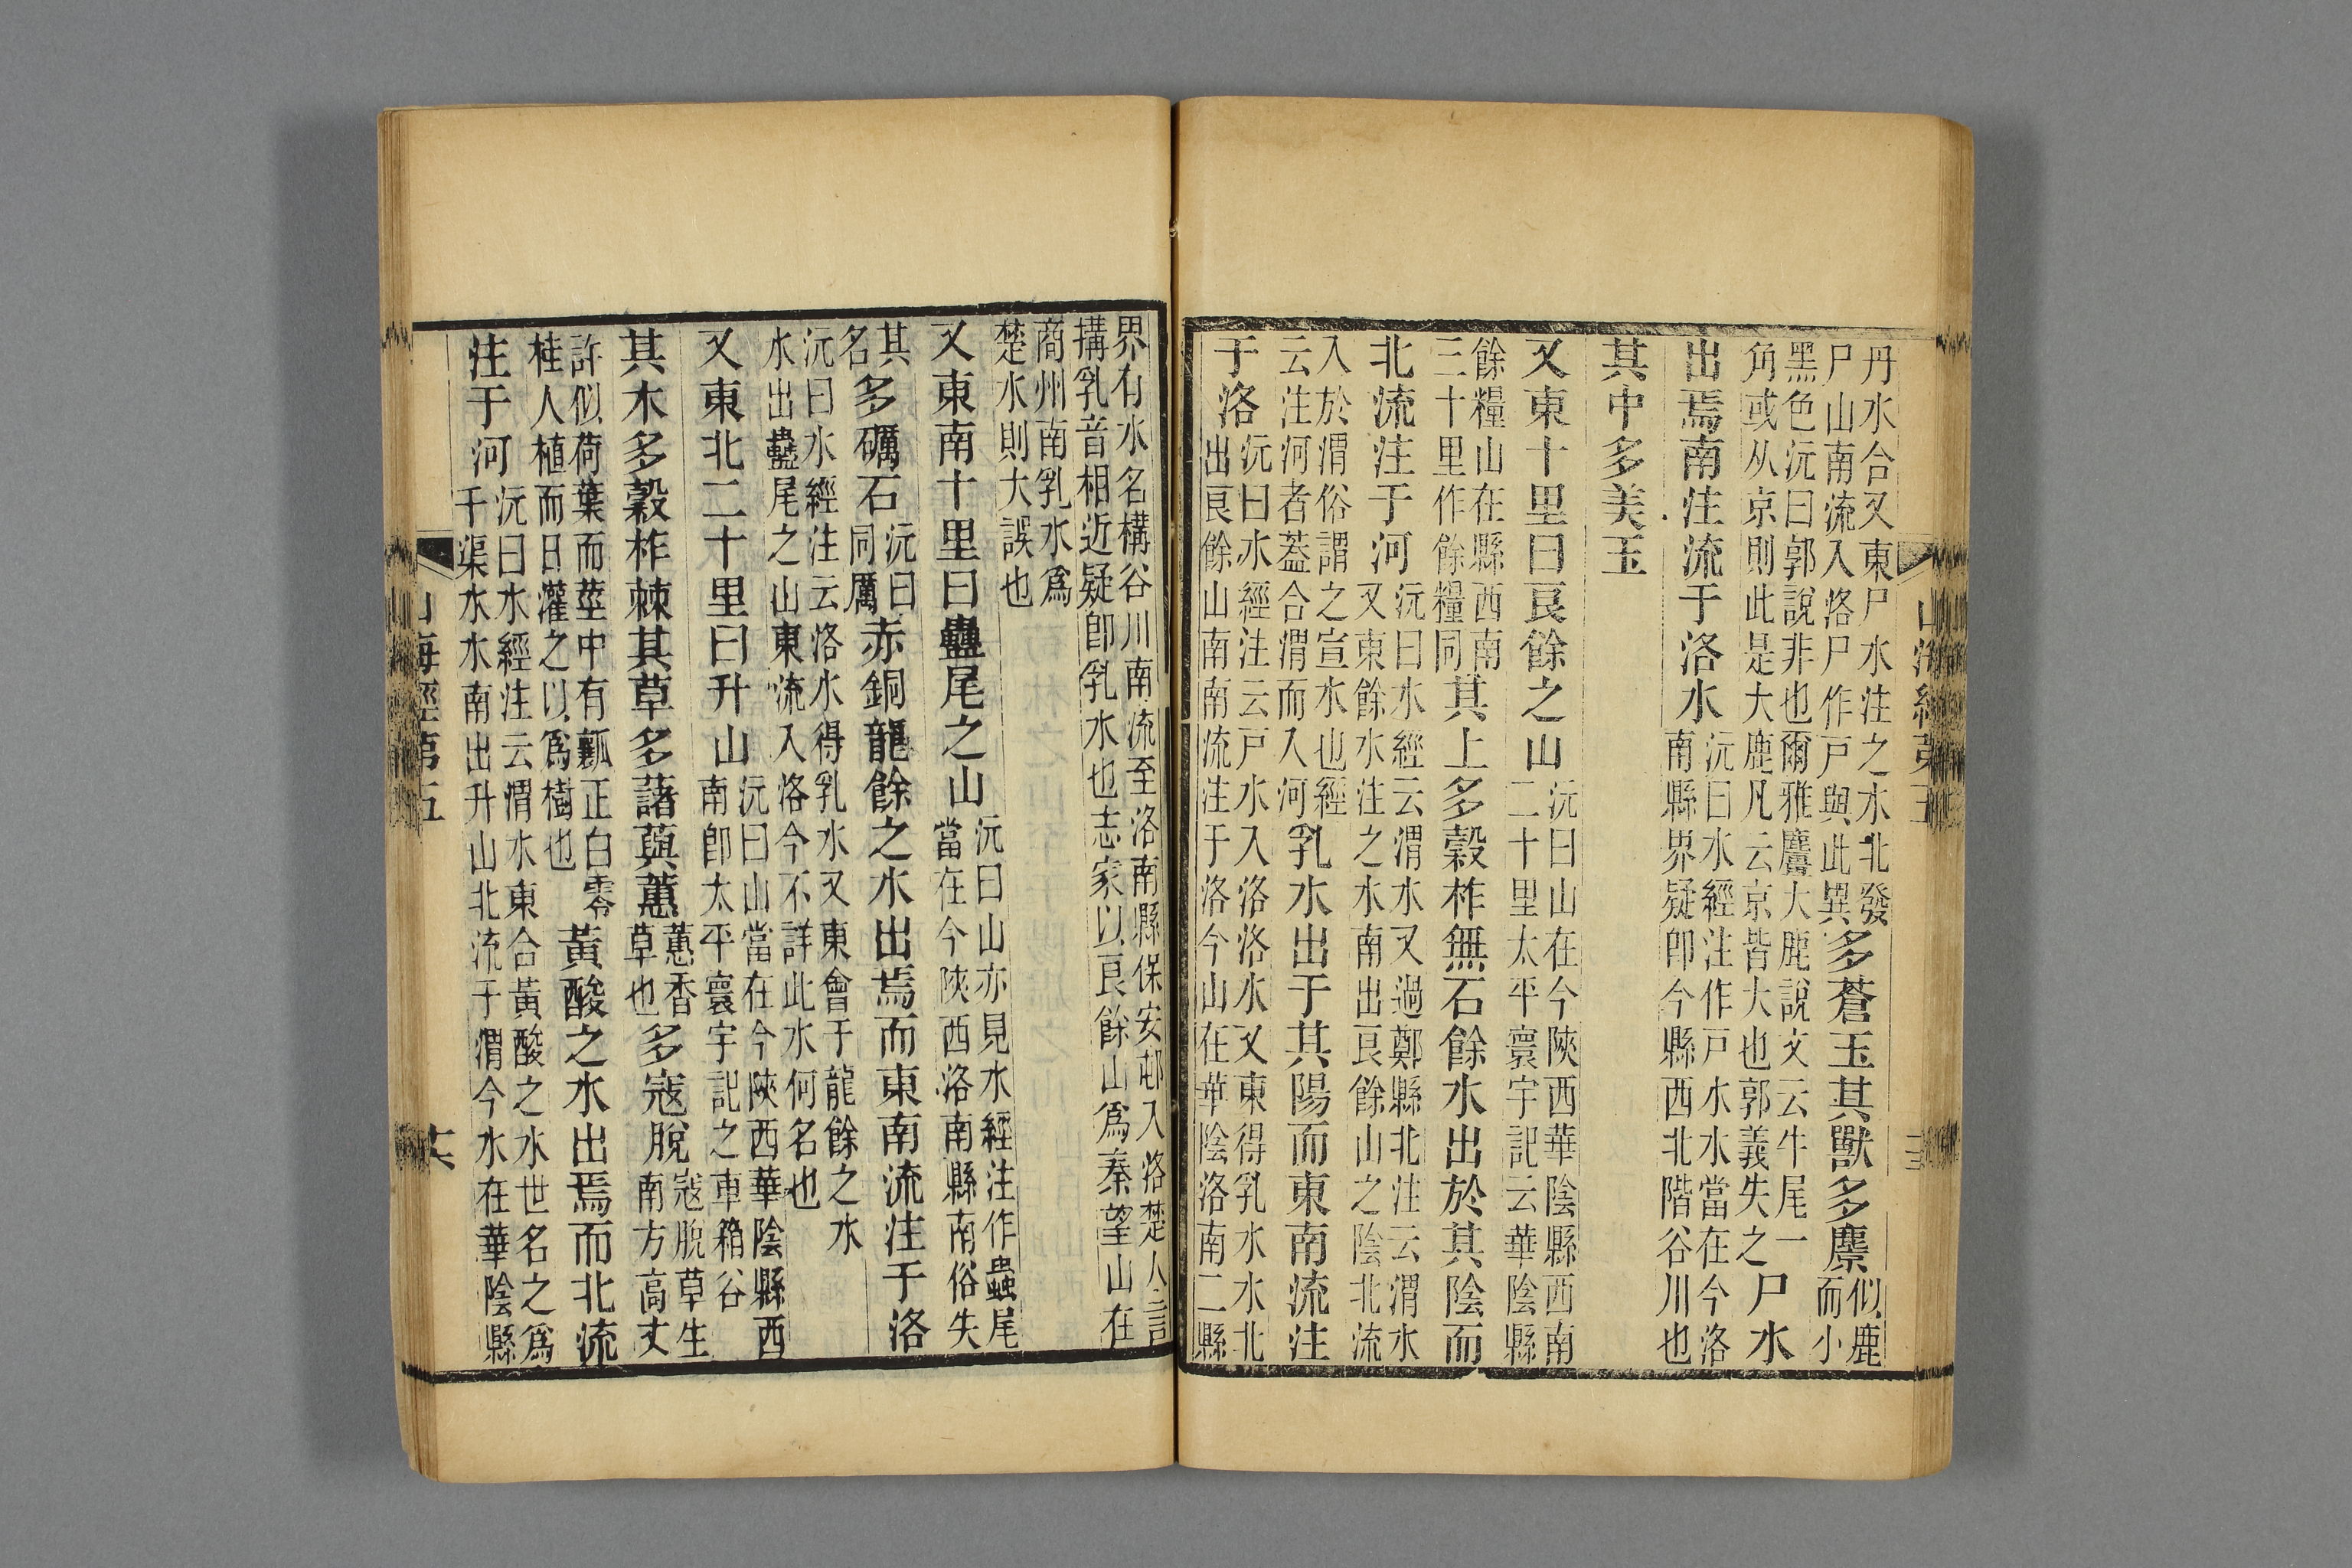 丹水合又東尸水注之水北發
尸山南流入洛尸作戸與此異多蒼玉其獸多麖似鹿
而小
黑色沅曰郭說非也爾雅麠大鹿說文云牛尾一
角或从京則此是大鹿凡云京皆大也郭義失之尸水
出焉南注流于洛水沅曰水經注作戸水水當在今洛
南縣界疑卽今縣西北階谷川也
其中多美玉
又東十里曰良餘之山沅曰山在今陝西華陰縣西南
二十里太平寰宇記云華陰縣
餘糧山在縣西南
三十里作餘糧同其上多穀柞無石餘水出於其陰而
北流注于河沅曰水經云渭水又過鄭縣北注云渭水
又東餘水注之水南出良餘山之陰北流
入於渭俗謂之宣水也經
云注河者葢合渭而入河乳水出于其陽而東南流注
于洛沅曰水經注云戸水入洛洛水又東得乳水水北
出良餘山南南流注于洛今山在華陰洛南二縣
界有水名構谷川南流至洛南縣保安邨入洛楚人言
搆乳音相近疑卽乳水也志家以良餘山爲秦望山在
商州南乳水爲
楚水則大誤也
又東南十里曰蠱尾之山沅曰山亦見水經注作蟲尾
當在今陝西洛南縣南俗失
其
名多礪石沅曰
同厲赤銅龍餘之水出焉而東南流注于洛
沅曰水經注云洛水得乳水又東會于龍餘之水
水出蠱尾之山東流入洛今不詳此水何名也
又東北二十里曰升山沅曰山當在今陝西華陰縣西
南卽太平寰宇記之車箱谷
其木多穀柞棘其草多藷藇蕙蕙香
草也多寇脫寇脫草生
南方高丈
許似荷葉而莖中有瓤正白零
桂人植而日灌之以爲樹也黃酸之水出焉而北流
注于河沅曰水經注云渭水東合黃酸之水世名之爲
千渠水水南出升山北流于渭今水在華陰縣
山海經第五